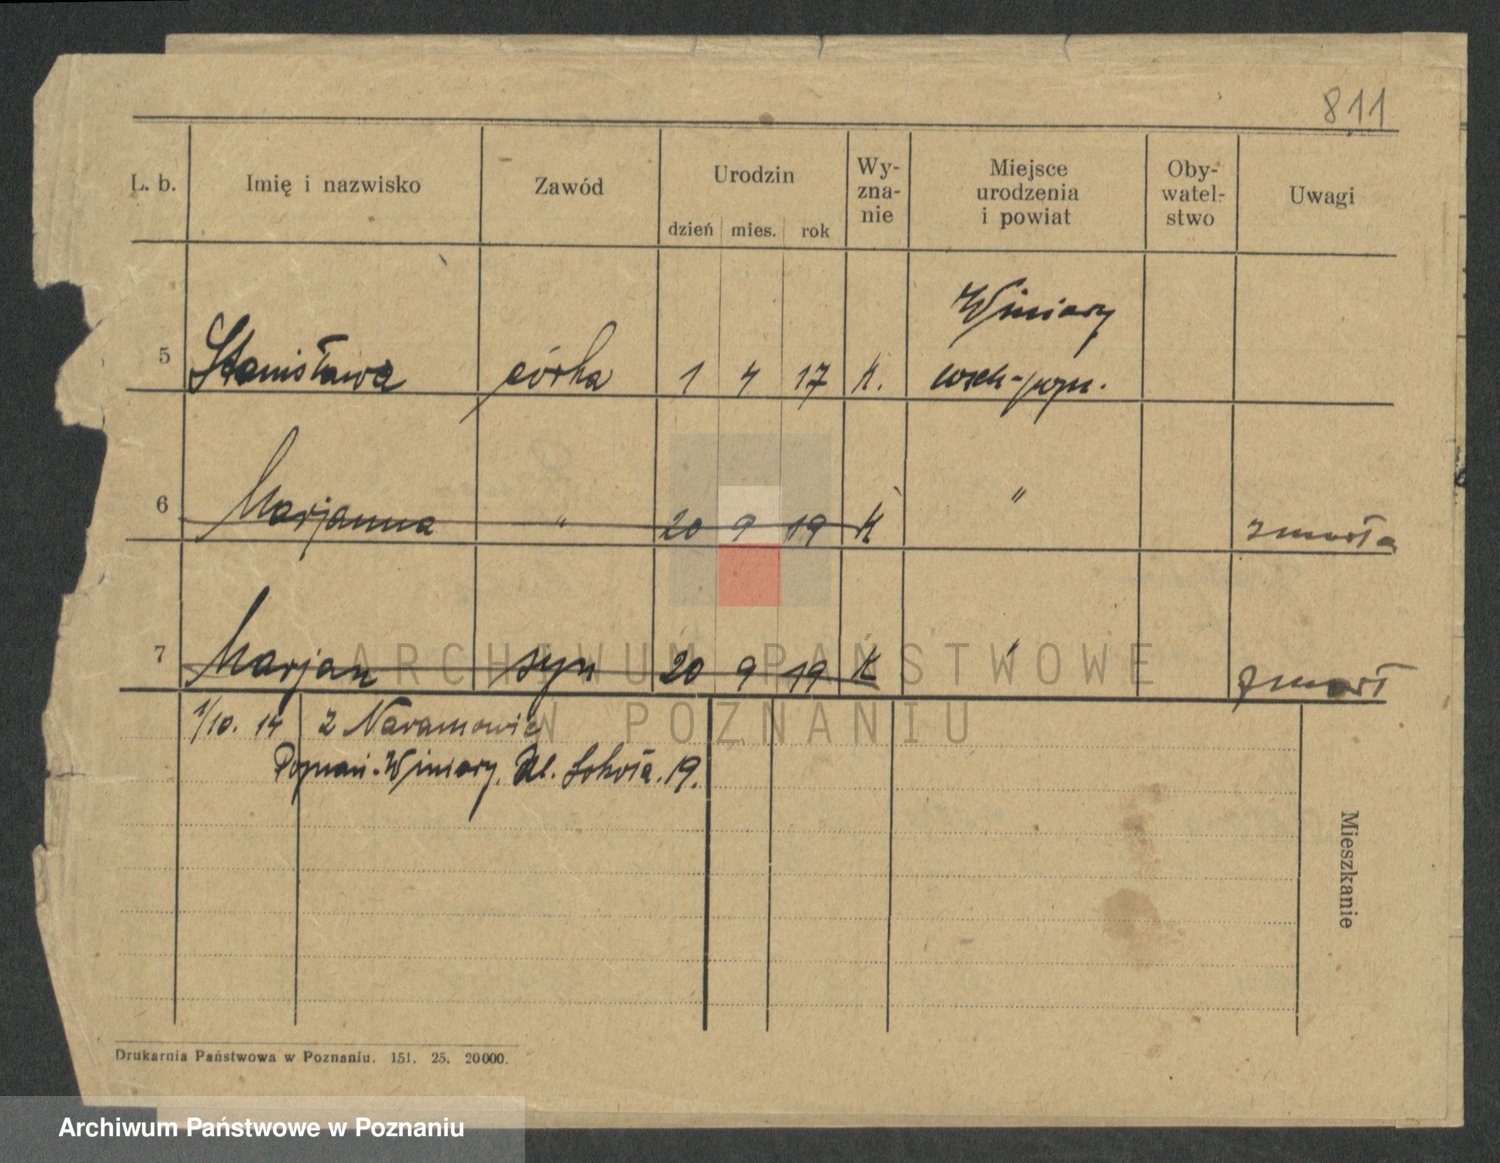 811
L. b. Imię i nazwisko Zawód Urodzin dzień mies. rok Wy-zna-nie Miejsce urodzenia i powiat Oby-watel-stwo Uwagi
Winiary
5 Stanisława córka 1 4 17 K. wsch-pozn.
6 Marjanna " 20 9 19 K " zmarła
7 Marjan syn 20 9 19 K " zmarł
ARCHIWUM PAŃSTWOWE
W POZNANIU
1/10. 14 z Naramowic
Poznań-Winiary, Ul. Sokoła. 19.
Mieszkanie
Drukarnia Państwowa w Poznaniu. 151. 25. 20000.
Archiwum Państwowe w Poznaniu